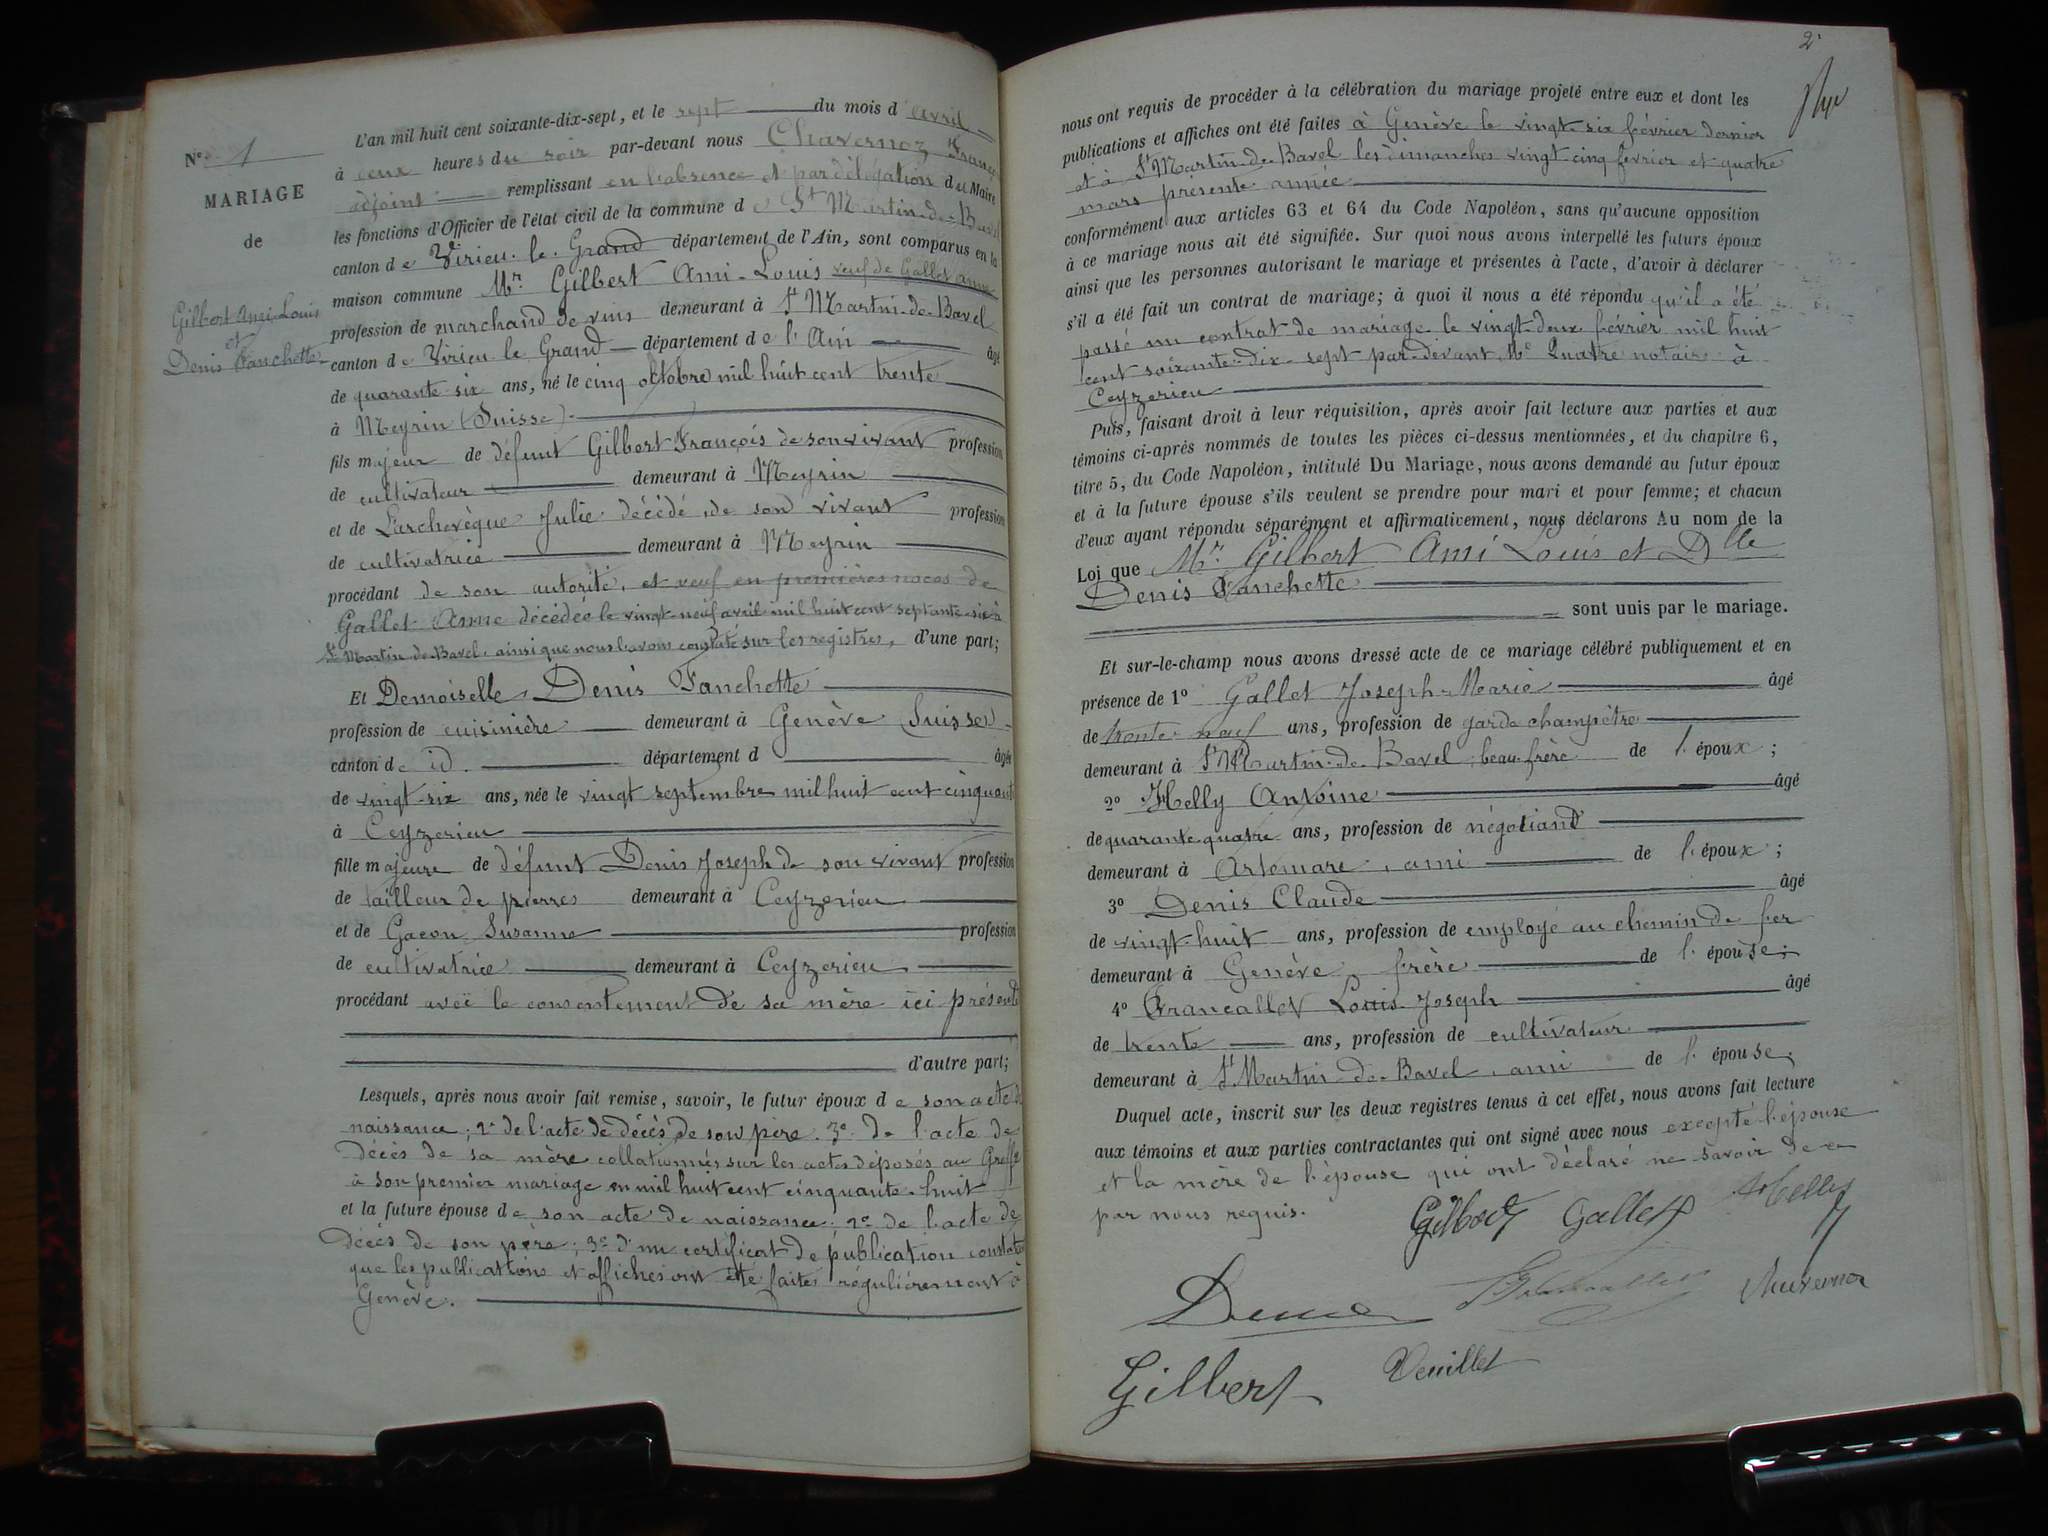 N° 1
MARIAGE
de
Gilbert Ami-Louis
et
Denis Fanchette
L'an mil huit cent soixante-dix-sept, et le sept du mois d'avril
à heures du soir par-devant nous Chavernoz Franç
adjoint remplissant en l'absence et par délégation du Maire
les fonctions d'Officier de l'état civil de la commune de St Martin-de-Bavel
canton de Virieu-le-Grand département de l'Ain, sont comparus en la
maison commune Mr Gilbert Ami-Louis veuf de Gallet Anne
profession de marchand de vins demeurant à St Martin-de-Bavel
canton de Virieu le Grand département de l'Ain âgé
de quarante-six ans, né le cinq octobre mil huit cent trente
à Meyrin (Suisse)
fils majeur de défunt Gilbert François de son vivant profession
de cultivateur demeurant à Meyrin
et de Larchevèque Julie décédé, de son vivant profession
de cultivatrice demeurant à Meyrin
procédant de son autorité, et veuf en premières noces de
Gallet Anne décédée le vingt-neuf avril mil huit cent septante-six à
St Martin de Bavel, ainsi que nous l'avons constaté sur les registres, d'une part;
Et Demoiselle Denis Fanchette
profession de cuisinière demeurant à Genève (Suisse)
canton de id. département d âgée
de vingt-six ans, née le vingt septembre mil huit cent cinquante
à Ceyzerieu
fille majeure de défunt Denis Joseph de son vivant profession
de tailleur de pierres demeurant à Ceyzerieu
et de Gacon Susanne profession
de cultivatrice demeurant à Ceyzerieu
procédant avec le consentement de sa mère ici présente
d'autre part;
Lesquels, après nous avoir fait remise, savoir, le futur époux de son acte de
naissance; 2° de l'acte de décès de son père. 3° de l'acte de
décès de sa mère collationnés sur les actes déposés au Greffe
à son premier mariage en mil huit cent cinquante-huit
et la future épouse de son acte de naissance; 2° de l'acte de
décès de son père; 3° d'un certificat de publication constatant
que les publications et affiches ont été faites régulièrement à
Genève.
2
nous ont requis de procéder à la célébration du mariage projeté entre eux et dont les
publications et affiches ont été faites à Genève le vingt-six février dernier
et à St Martin-de-Bavel les dimanches vingt-cinq février et quatre
mars présente année
conformément aux articles 63 et 64 du Code Napoléon, sans qu'aucune opposition
à ce mariage nous ait été signifiée. Sur quoi nous avons interpellé les futurs époux
ainsi que les personnes autorisant le mariage et présentes à l'acte, d'avoir à déclarer
s'il a été fait un contrat de mariage; à quoi il nous a été répondu qu'il a été
passé un contrat de mariage le vingt-deux février mil huit
cent soixante-dix-sept par-devant Me Quatre notaire à
Ceyzerieu
Puis, faisant droit à leur réquisition, après avoir fait lecture aux parties et aux
témoins ci-après nommés de toutes les pièces ci-dessus mentionnées, et du chapitre 6,
titre 5, du Code Napoléon, intitulé Du Mariage, nous avons demandé au futur époux
et à la future épouse s'ils veulent se prendre pour mari et pour femme; et chacun
d'eux ayant répondu séparément et affirmativement, nous déclarons Au nom de la
Loi que Mr. Gilbert Ami Louis et Dlle
Denis Fanchette
sont unis par le mariage.
Et sur-le-champ nous avons dressé acte de ce mariage célébré publiquement et en
présence de 1° Gallet Joseph-Marie âgé
de trente-neuf ans, profession de garde champêtre
demeurant à St Martin-de-Bavel, beau-frère de l'époux;
2° Helly Antoine âgé
de quarante quatre ans, profession de négociant
demeurant à Artemare, ami de l'époux;
3° Denis Claude âgé
de vingt-huit ans, profession de employé au chemin de fer
demeurant à Genève frère de l'épouse;
4° Francallet Louis-Joseph âgé
de trente ans, profession de cultivateur
demeurant à St Martin-de-Bavel, ami de l'épouse;
Duquel acte, inscrit sur les deux registres tenus à cet effet, nous avons fait lecture
aux témoins et aux parties contractantes qui ont signé avec nous excepté l'épouse
et la mère de l'épouse qui ont déclaré ne savoir de ce
par nous requis.
Gilbert Gallet Helly
Chavernoz
Gilbert Veuillet